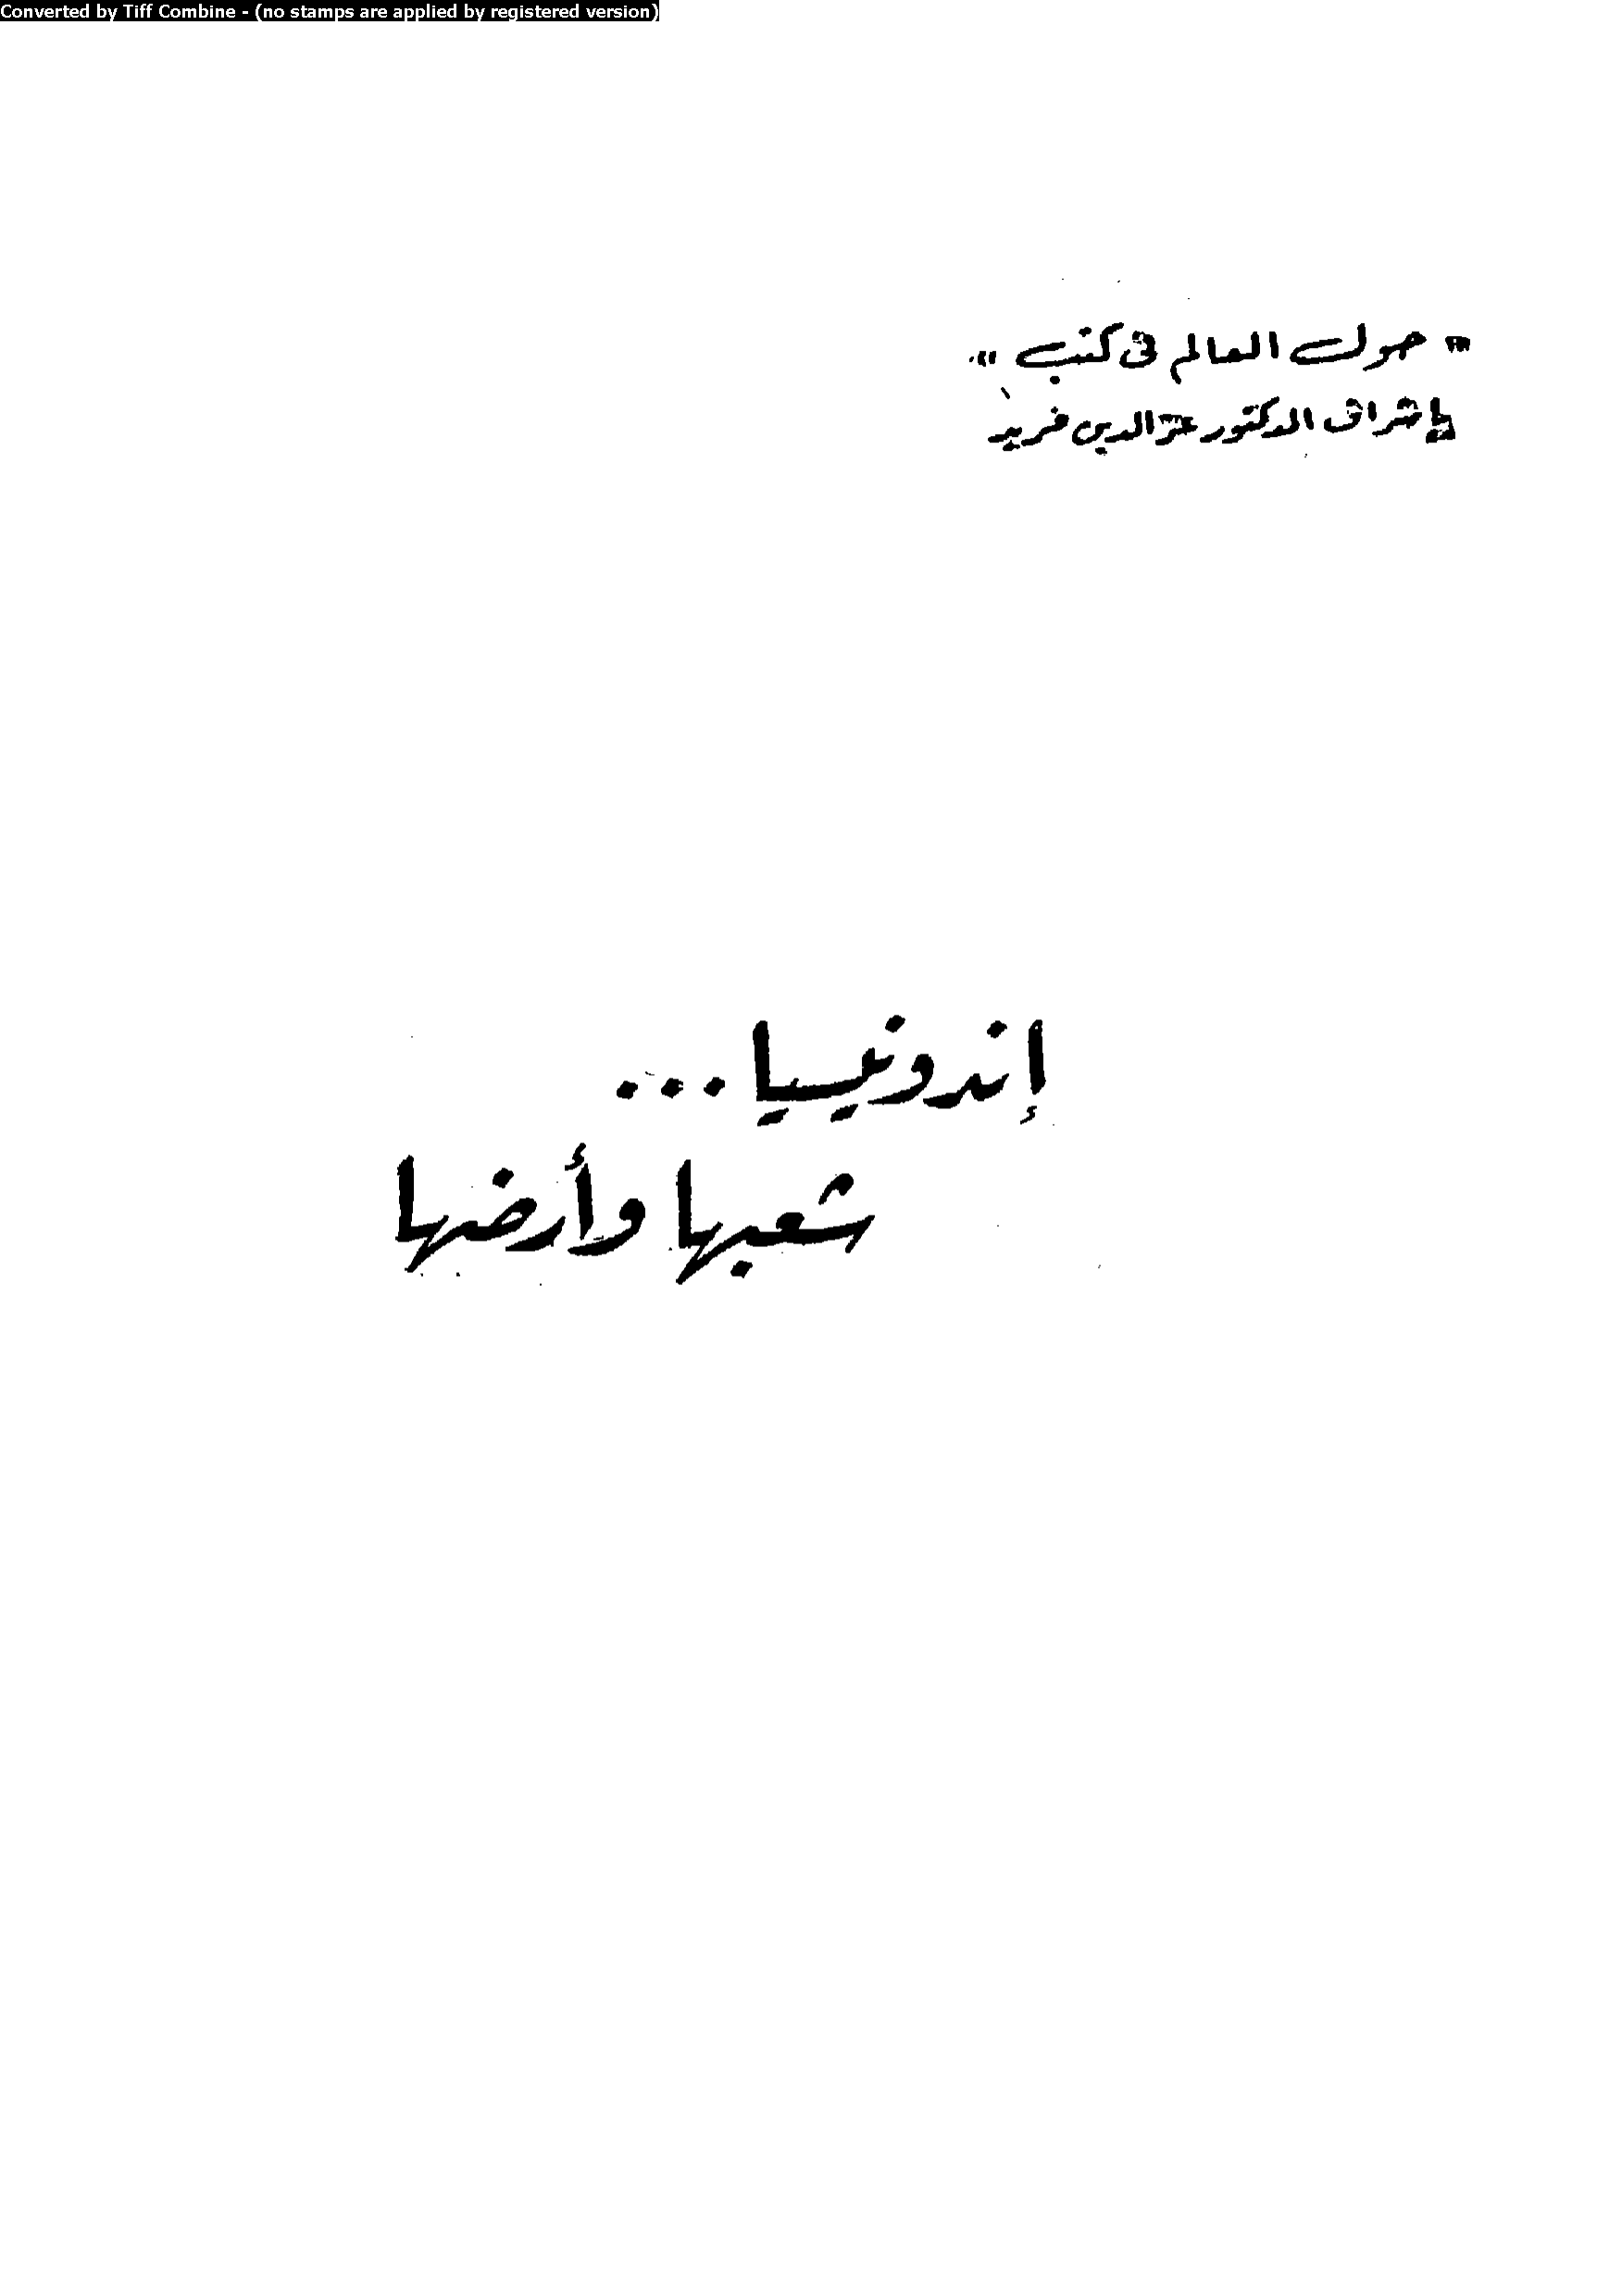 Converted by Tiff Combine - (no stamps are applied by registered version)
"حول العالم فى كتب"
بإشراق الدكتور عز الدين فريد
إندونيسيا...
شعبها وأرضها